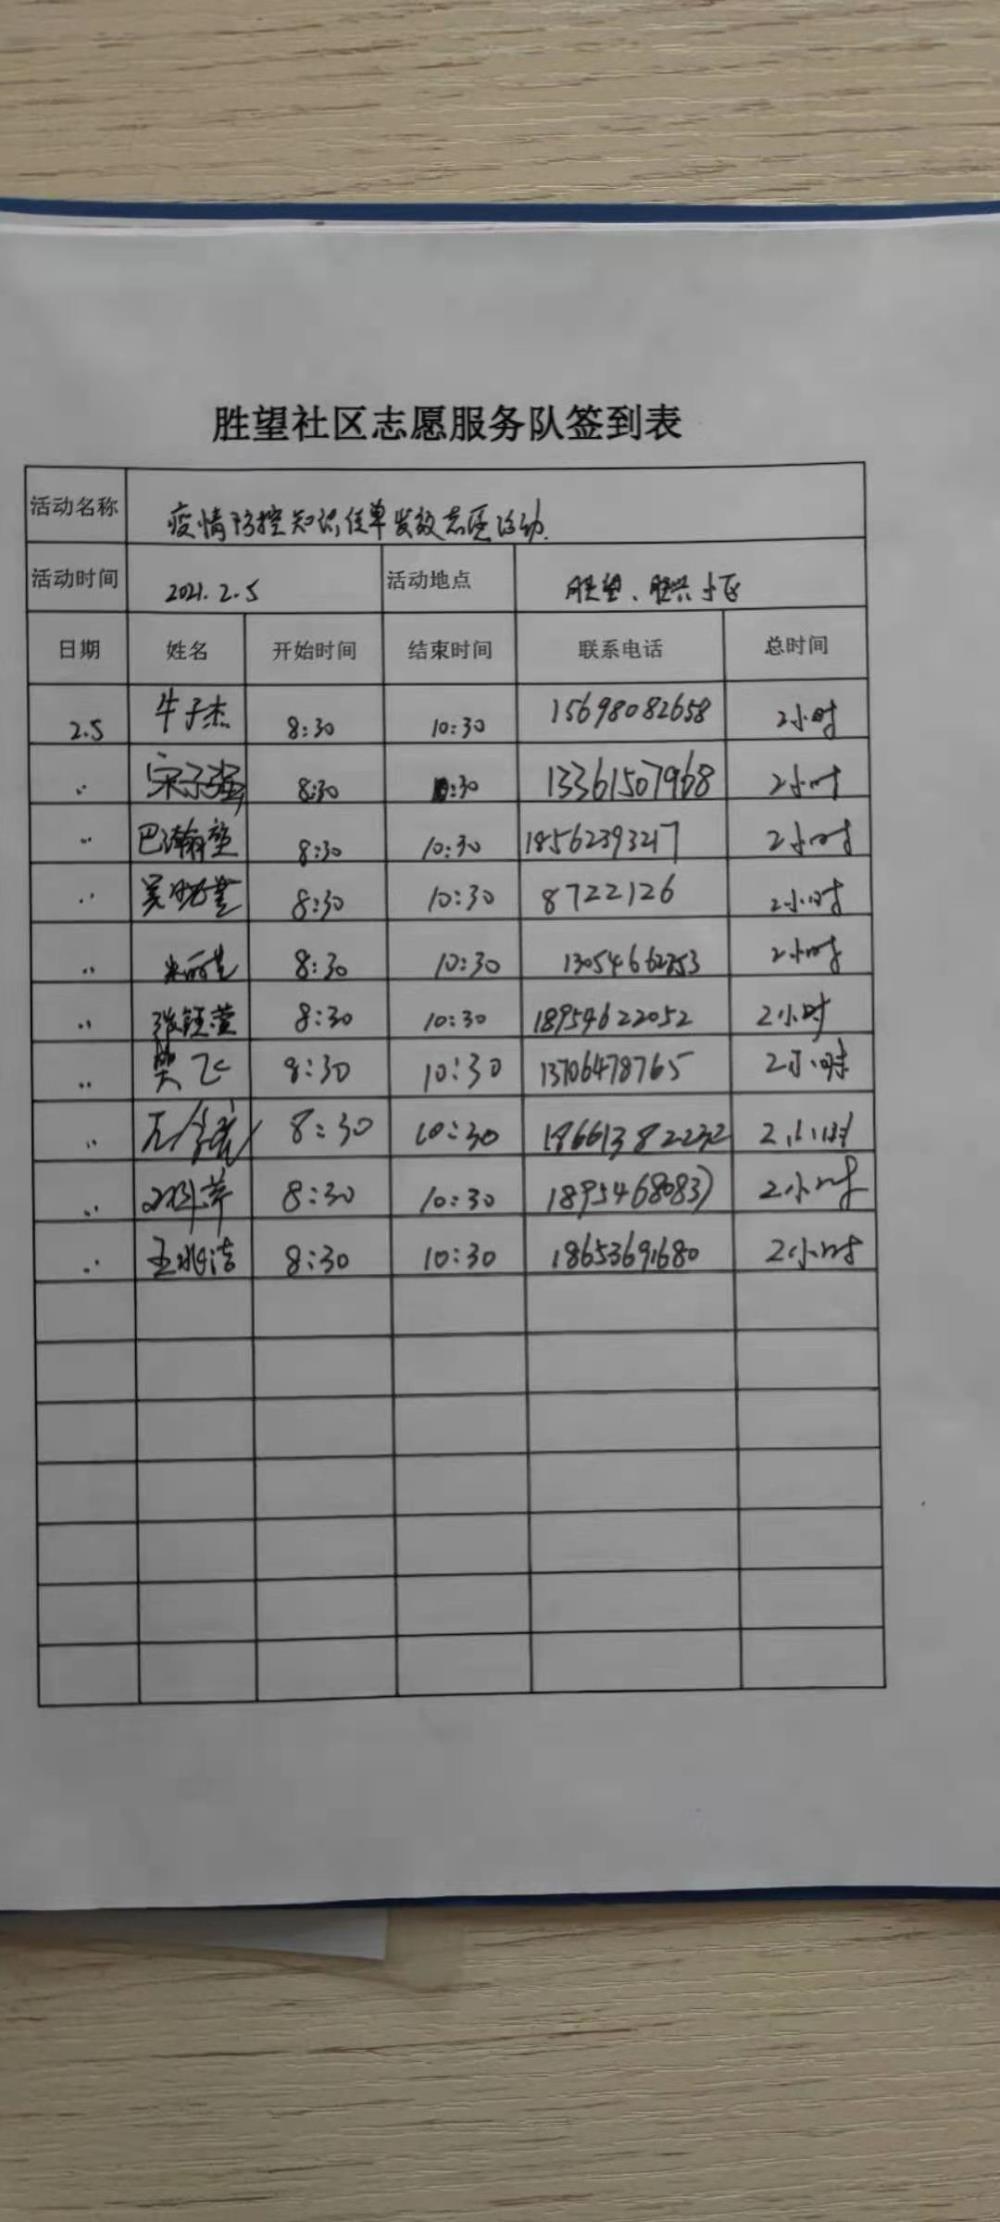 胜望社区志愿服务队签到表
活动名称 疫情防控知识传单发放志愿活动
活动时间 2021.2.5 活动地点 胜望、胜兴小区
日期 姓名 开始时间 结束时间 联系电话 总时间
2.5 牛子杰 8:30 10:30 15698082658 2小时
" 宋子强 8:30 10:30 13361507968 2小时
" 巴瀚莹 8:30 10:30 18562393217 2小时
" 8:30 10:30 8722126 2小时
" 8:30 10:30 2小时
" 张钰莹 8:30 10:30 18954622052 2小时
" 樊飞 8:30 10:30 13706478765 2小时
" 8:30 10:30 2小时
" 8:30 10:30 2小时
" 8:30 10:30 18653691680 2小时